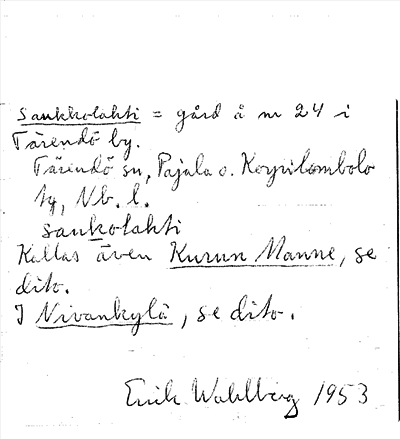 Saukkolahti = gård å nr 24 i
Tärendö by.
Tärendö sn, Pajala o. Korpilombolo
tg, Nb. l.
saukolahti
Kallas även Kurun Manne, se
dito.
I Nivankylä, se dito.
Erik Wahlberg 1953